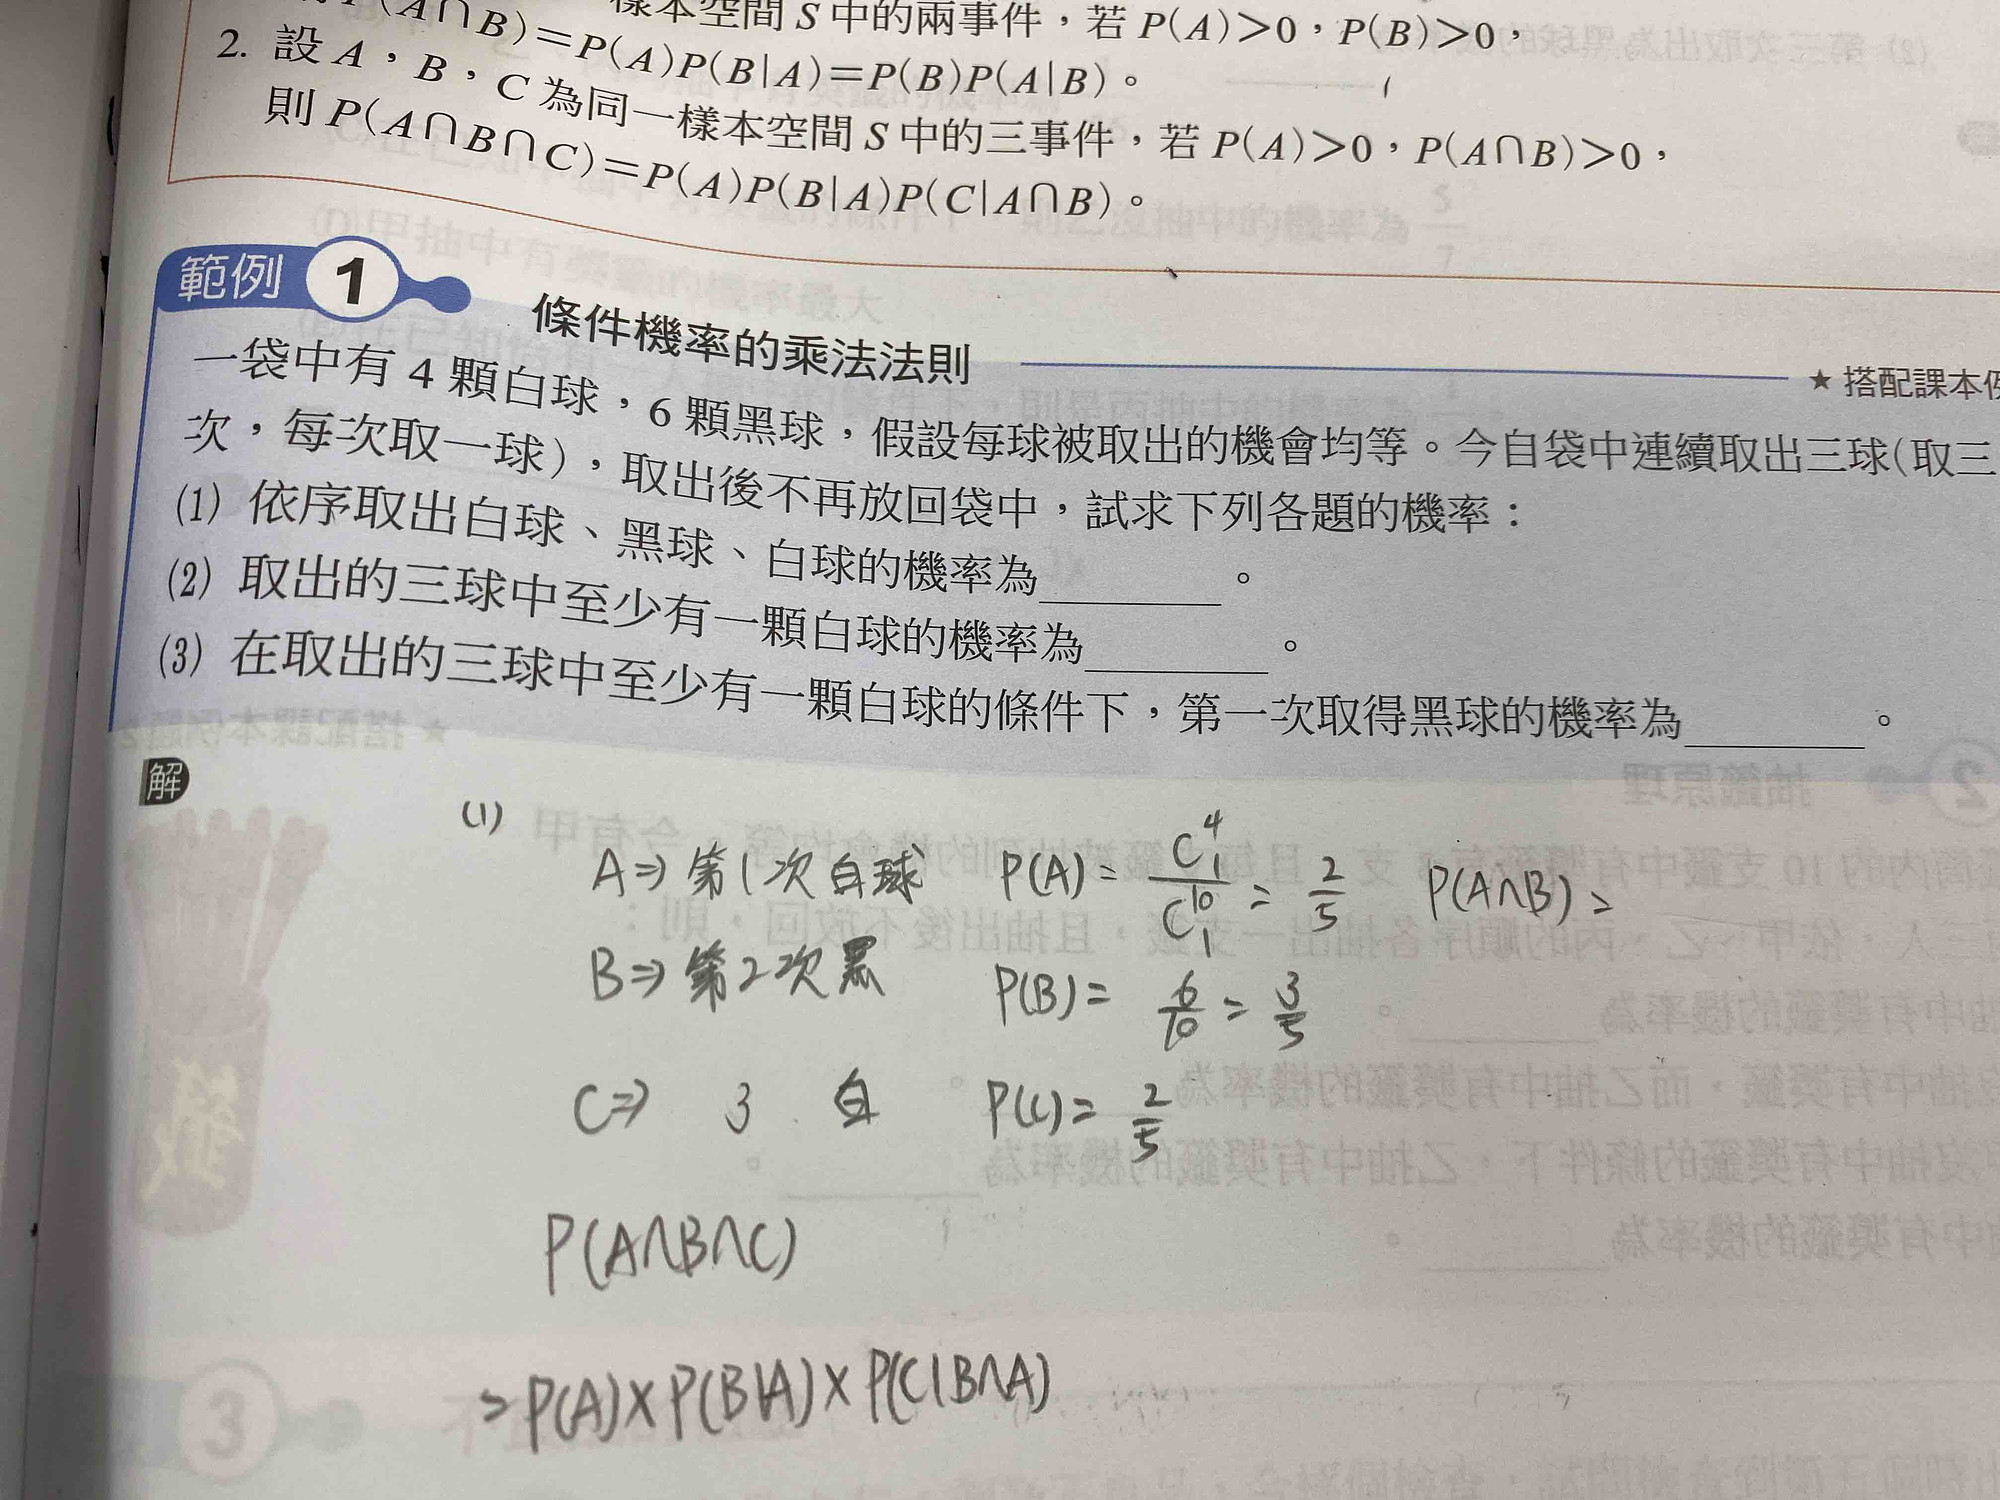 樣本空間 S 中的兩事件，若 P(A)>0，P(B)>0，
P(A∩B)=P(A)P(B|A)=P(B)P(A|B)。
2. 設 A，B，C 為同一樣本空間 S 中的三事件，若 P(A)>0，P(A∩B)>0，
則 P(A∩B∩C)=P(A)P(B|A)P(C|A∩B)。
範例 1 條件機率的乘法法則
★ 搭配課本
一袋中有 4 顆白球，6 顆黑球，假設每球被取出的機會均等。今自袋中連續取出三球(取三
次，每次取一球)，取出後不再放回袋中，試求下列各題的機率：
(1) 依序取出白球、黑球、白球的機率為______。
(2) 取出的三球中至少有一顆白球的機率為______。
(3) 在取出的三球中至少有一顆白球的條件下，第一次取得黑球的機率為______。
解
(1)
A⇒ 第1次白球 P(A)= C⁴₁/C¹⁰₁ = 2/5 P(A∩B)=
B⇒ 第2次黑 P(B)= 6/10 = 3/5
C⇒ 3 白 P(C)= 2/5
P(A∩B∩C)
=P(A)×P(B|A)×P(C|B∩A)